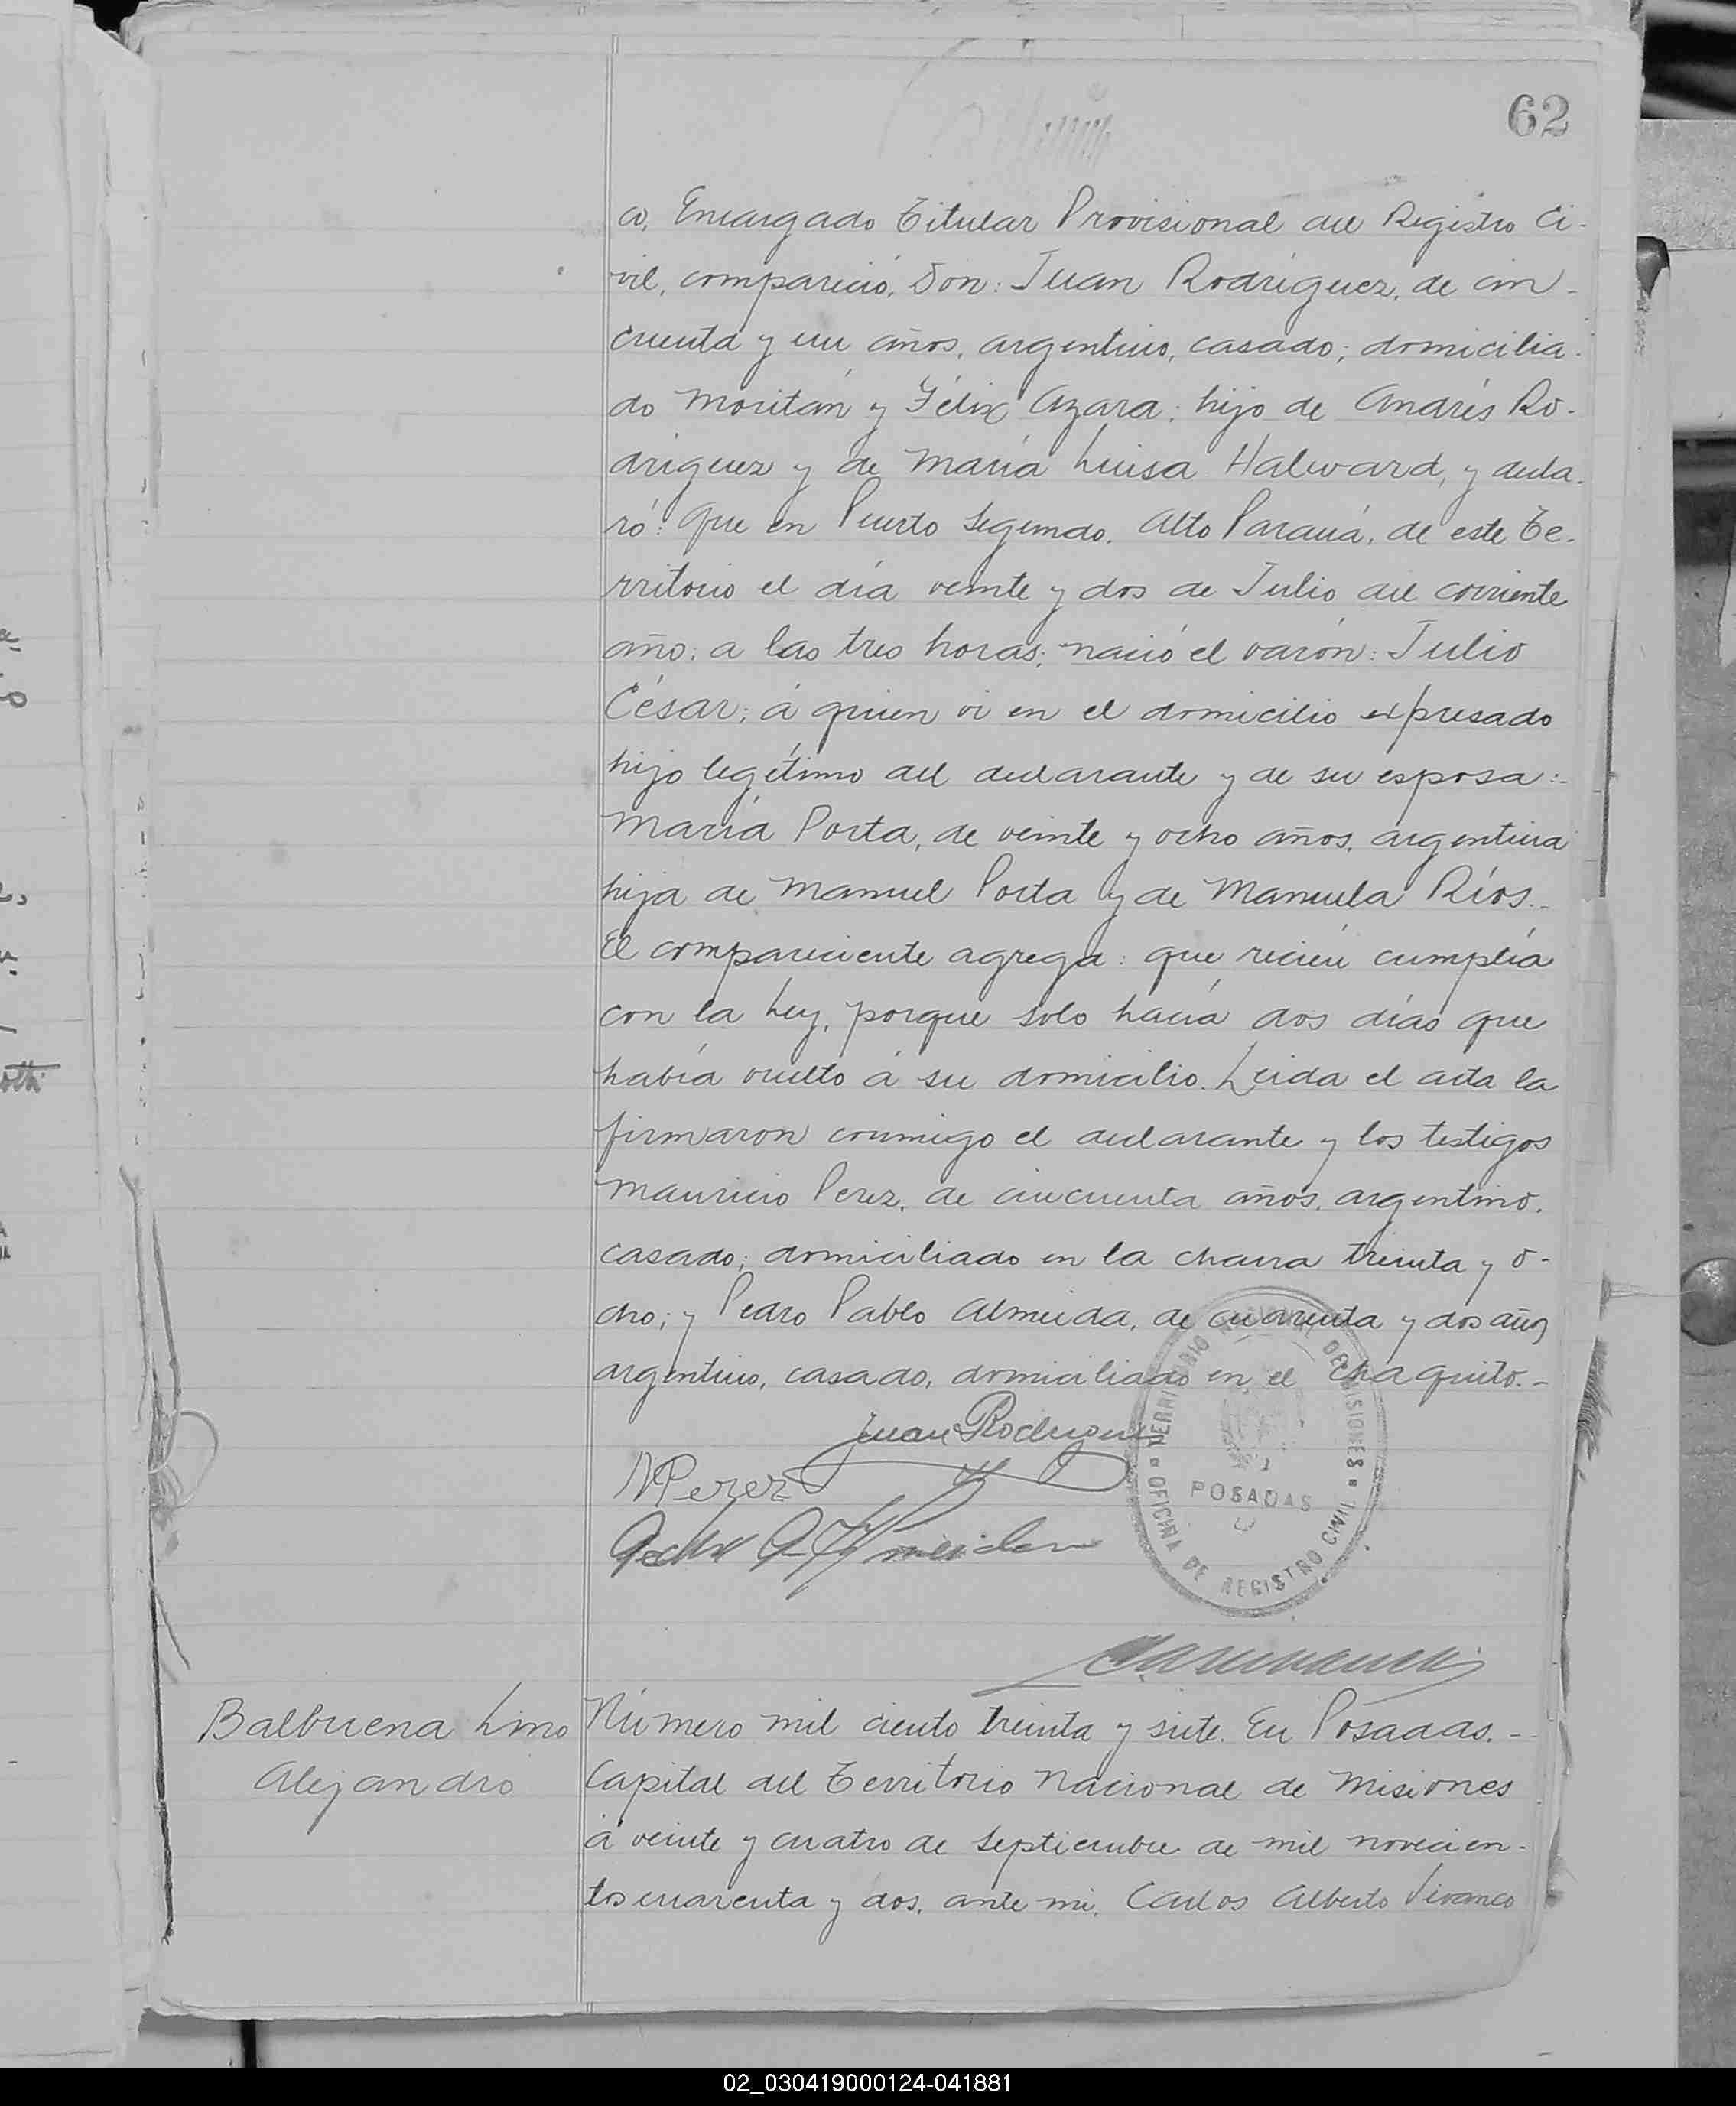 62
co, Encargado Titular Provisional del Registro Ci-
vil, compareció, Don: Juan Rodríguez, de cin-
cuenta y un años, argentino, casado; domicilia-
do Moritán y Félix Azara; hijo de Andrés Ro-
dríguez y de María Luisa Halward, y decla-
ró: Que en Puerto Segundo, Alto Paraná, de este Te-
rritorio el día veinte y dos de Julio del corriente
año; a las tres horas; nació el varón: Julio
César; á quien vi en el domicilio expresado
hijo legítimo del declarante y de su esposa:
María Porta, de veinte y ocho años, argentina
hija de Manuel Porta y de Manuela Ríos.-
El compareciente agrega: que recién cumplía
con la Ley, porque solo hacía dos días que
había vuelto á su domicilio. Leida el acta la
firmaron conmigo el declarante y los testigos
Mauricio Perez, de cincuenta años, argentino,
casado; domiciliado en la chacra treinta y o-
cho; y Pedro Pablo Almeida, de cuarenta y dos años
argentino, casado, domiciliado en el Chaquito.-
Juan Rodriguez
M Perez
Pedro P Almeida
TERRITORIO NACIONAL DE MISIONES
POSADAS
OFICINA DE REGISTRO CIVIL
Balbuena Lino
Alejandro
Número mil ciento treinta y siete. En Posadas.-
Capital del Territorio Nacional de Misiones
á veinte y cuatro de Septiembre de mil novecien-
tos cuarenta y dos, ante mi, Carlos Alberto Vivanco
02_030419000124-041881